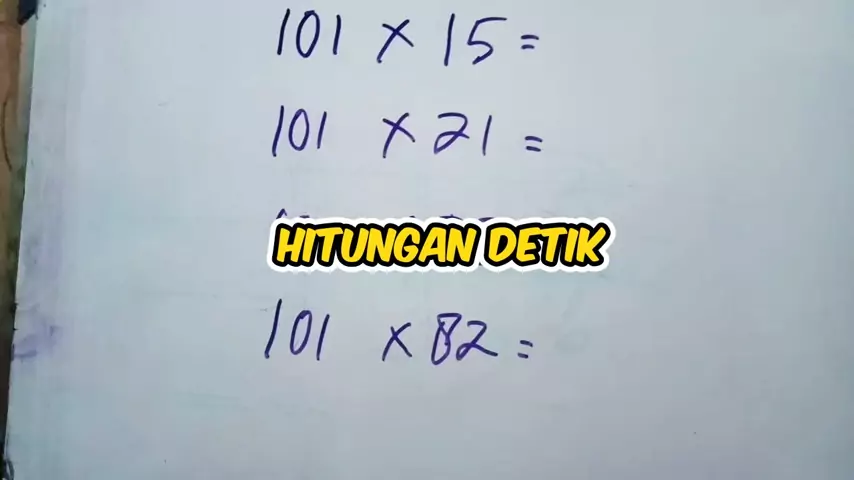 101 × 15 =
101 × 21 =
HITUNGAN DETIK
101 × 82 =